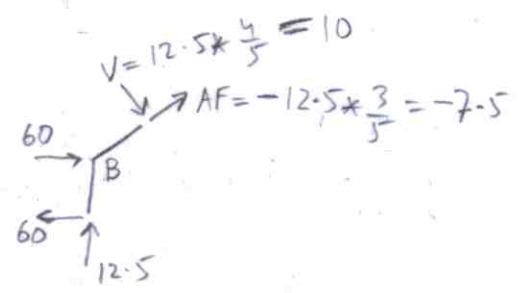 V = 12.5 * 4/5 = 10
AF = -12.5 * 3/5 = -7.5
60
B
60
12.5